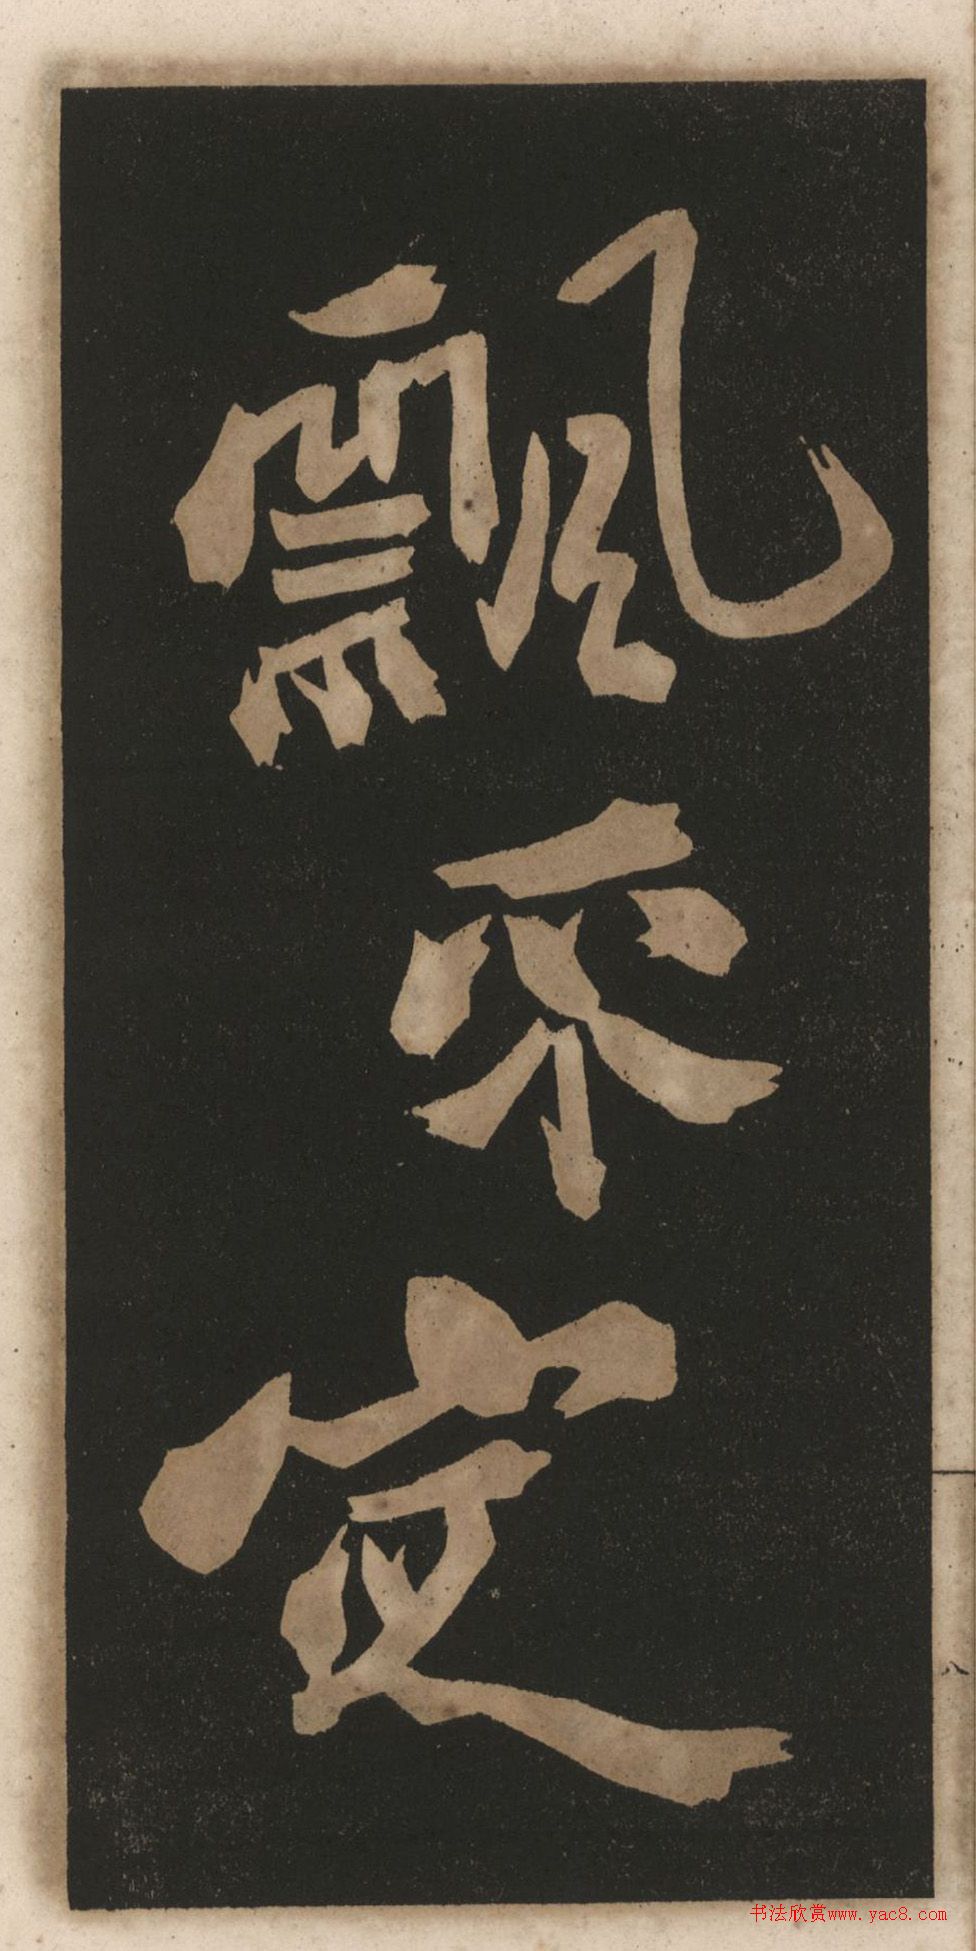 飄
定
书法欣赏www.yac8.com